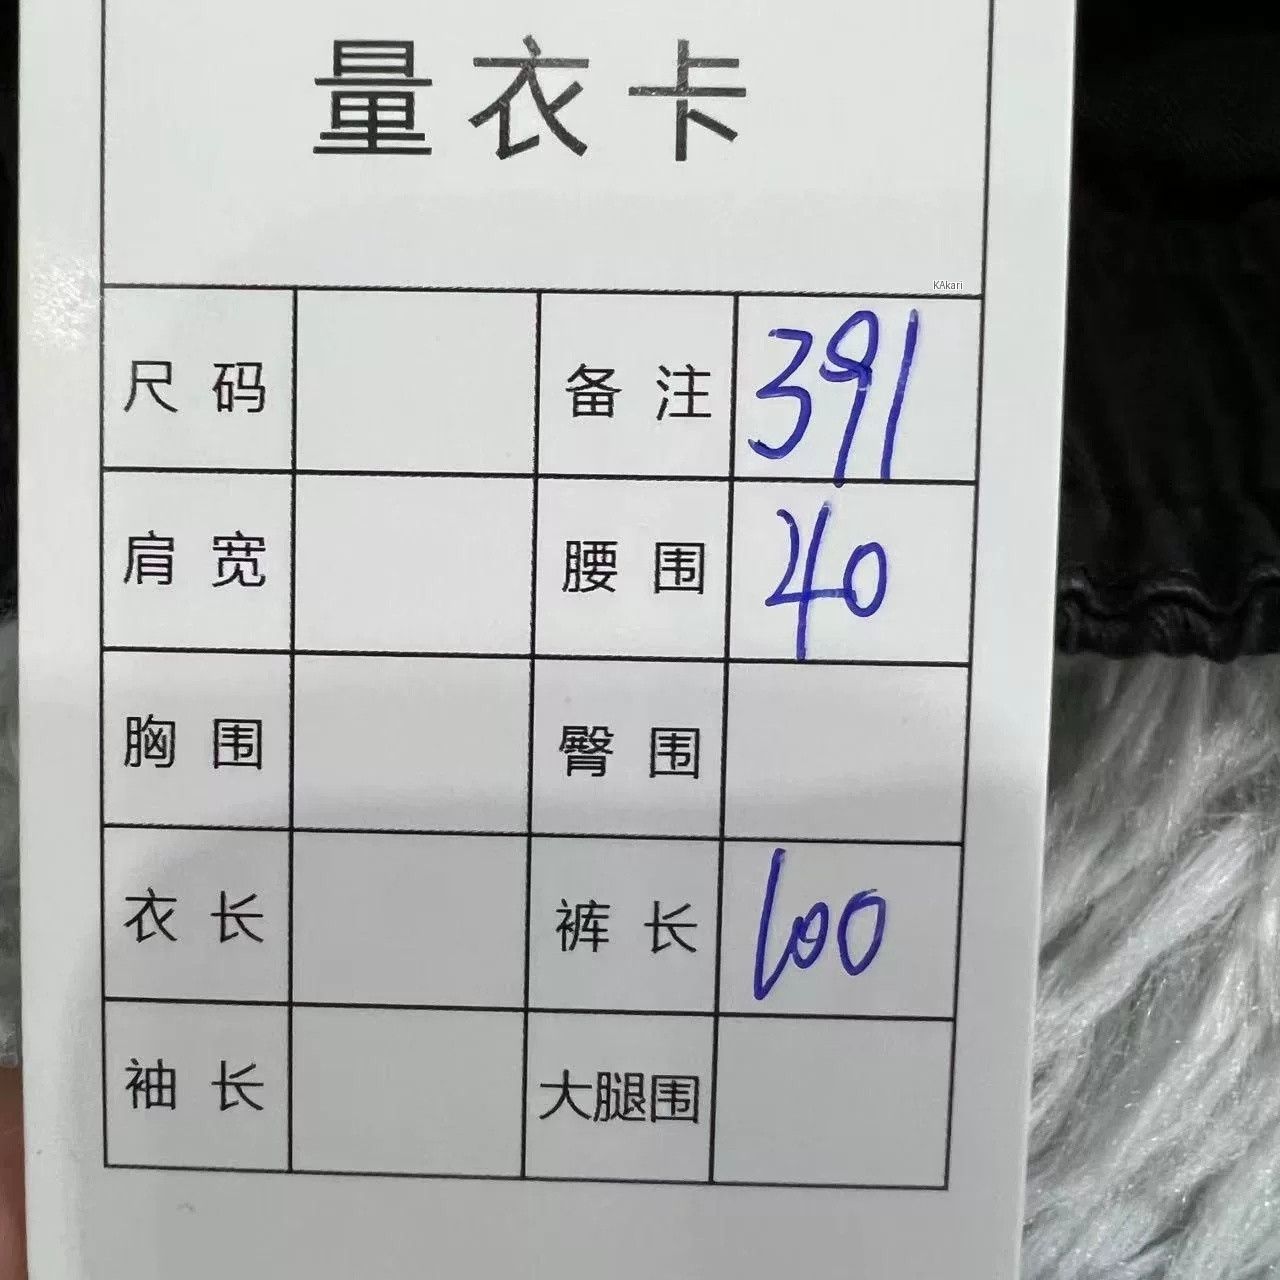 量衣卡
KAkari
尺码 备注 391
肩宽 腰围 40
胸围 臀围
衣长 裤长 100
袖长 大腿围